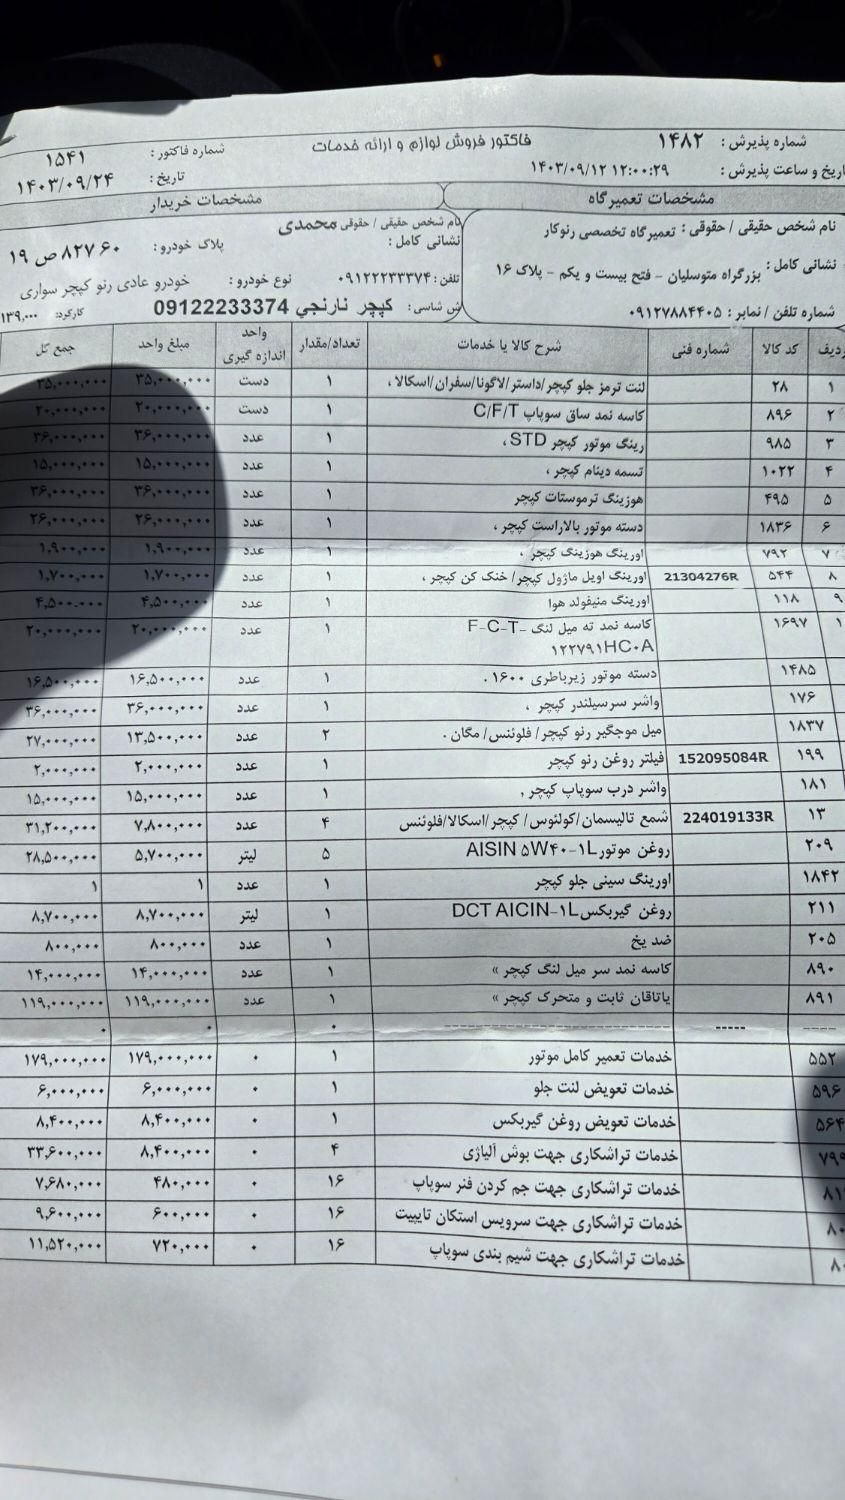 شماره پذیرش : ۱۴۸۲ فاکتور فروش لوازم و ارائه خدمات شماره فاکتور : ۱۵۴۱
اریخ و ساعت پذیرش : ۱۴۰۳/۰۹/۱۲ ۱۲:۰۰:۲۹ تاریخ : ۱۴۰۳/۰۹/۲۴
مشخصات تعمیرگاه مشخصات خریدار
نام شخص حقیقی / حقوقی : تعمیرگاه تخصصی رنوکار
نشانی کامل : بزرگراه متوسلیان - فتح بیست و یکم - پلاک ۱۶
شماره تلفن / نمابر : ۰۹۱۲۷۸۸۴۴۰۵
نام شخص حقیقی / حقوقی محمدی پلاک خودرو : ۶۰ ۸۲۷ص ۱۹
نشانی کامل :
تلفن : ۰۹۱۲۲۲۳۳۳۷۴ نوع خودرو : خودرو عادی رنو کپچر سواری
ش شاسی : کپچر نارنجي 09122233374 کارکرد: ۱۳۹,۰۰۰
ردیف کد کالا شماره فنی شرح کالا یا خدمات تعداد/مقدار واحد اندازه گیری مبلغ واحد جمع کل
۱ ۲۸ لنت ترمز جلو کپچر/داستر/لاگونا/سفران/اسکالا ، ۱ دست ۳۵,۰۰۰,۰۰۰ ۳۵,۰۰۰,۰۰۰
۲ ۸۹۶ کاسه نمد ساق سوپاپ C/F/T ۱ دست ۲۰,۰۰۰,۰۰۰ ۲۰,۰۰۰,۰۰۰
۳ ۹۸۵ رینگ موتور کپچر STD ، ۱ عدد ۳۶,۰۰۰,۰۰۰ ۳۶,۰۰۰,۰۰۰
۴ ۱۰۲۲ تسمه دینام کپچر ، ۱ عدد ۱۵,۰۰۰,۰۰۰ ۱۵,۰۰۰,۰۰۰
۵ ۴۹۵ هوزینگ ترموستات کپچر ۱ عدد ۳۶,۰۰۰,۰۰۰ ۳۶,۰۰۰,۰۰۰
۶ ۱۸۳۶ دسته موتور بالاراست کپچر ، ۱ عدد ۲۶,۰۰۰,۰۰۰ ۲۶,۰۰۰,۰۰۰
۷ ۷۹۲ اورینگ هوزینگ کپچر ، ۱ عدد ۱,۹۰۰,۰۰۰ ۱,۹۰۰,۰۰۰
۸ ۵۴۴ 21304276R اورینگ اویل ماژول کپچر/ خنک کن کپچر ، ۱ عدد ۱,۷۰۰,۰۰۰ ۱,۷۰۰,۰۰۰
۹ ۱۱۸ اورینگ منیفولد هوا ۱ عدد ۴,۵۰۰,۰۰۰ ۴,۵۰۰,۰۰۰
۱ ۱۶۹۷ کاسه نمد ته میل لنگ F-C-T- ۱ عدد ۲۰,۰۰۰,۰۰۰ ۲۰,۰۰۰,۰۰۰
۱۲۲۷۹۱HC۰A
۱۴۸۵ دسته موتور زیرباطری ۱۶۰۰ . ۱ عدد ۱۶,۵۰۰,۰۰۰ ۱۶,۵۰۰,۰۰۰
۱۷۶ واشر سرسیلندر کپچر ، ۱ عدد ۳۶,۰۰۰,۰۰۰ ۳۶,۰۰۰,۰۰۰
۱۸۳۷ میل موجگیر رنو کپچر/ فلوئنس/ مگان . ۲ عدد ۱۳,۵۰۰,۰۰۰ ۲۷,۰۰۰,۰۰۰
۱۹۹ 152095084R فیلتر روغن رنو کپچر ۱ عدد ۲,۰۰۰,۰۰۰ ۲,۰۰۰,۰۰۰
۱۸۱ واشر درب سوپاپ کپچر , ۱ عدد ۱۵,۰۰۰,۰۰۰ ۱۵,۰۰۰,۰۰۰
۱۳ 224019133R شمع تالیسمان/کولئوس/ کپچر/اسکالا/فلوئنس ۴ عدد ۷,۸۰۰,۰۰۰ ۳۱,۲۰۰,۰۰۰
۲۰۹ روغن موتور AISIN ۵W۴۰-۱L ۵ لیتر ۵,۷۰۰,۰۰۰ ۲۸,۵۰۰,۰۰۰
۱۸۴۲ اورینگ سینی جلو کپچر ۱ عدد ۱ ۱
۲۱۱ روغن گیربکس DCT AICIN-۱L ۱ لیتر ۸,۷۰۰,۰۰۰ ۸,۷۰۰,۰۰۰
۲۰۵ ضد یخ ۱ عدد ۸۰۰,۰۰۰ ۸۰۰,۰۰۰
۸۹۰ کاسه نمد سر میل لنگ کپچر » ۱ عدد ۱۴,۰۰۰,۰۰۰ ۱۴,۰۰۰,۰۰۰
۸۹۱ یاتاقان ثابت و متحرک کپچر » ۱ عدد ۱۱۹,۰۰۰,۰۰۰ ۱۱۹,۰۰۰,۰۰۰
---- ----- ------------------------- ۰ ۰ ۰
۵۵۲ خدمات تعمیر کامل موتور ۱ ۰ ۱۷۹,۰۰۰,۰۰۰ ۱۷۹,۰۰۰,۰۰۰
۵۹۶ خدمات تعویض لنت جلو ۱ ۰ ۶,۰۰۰,۰۰۰ ۶,۰۰۰,۰۰۰
۵۶۴ خدمات تعویض روغن گیربکس ۱ ۰ ۸,۴۰۰,۰۰۰ ۸,۴۰۰,۰۰۰
۷۹۹ خدمات تراشکاری جهت بوش آلیاژی ۴ ۰ ۸,۴۰۰,۰۰۰ ۳۳,۶۰۰,۰۰۰
خدمات تراشکاری جهت جم کردن فنر سوپاپ ۱۶ ۰ ۴۸۰,۰۰۰ ۷,۶۸۰,۰۰۰
خدمات تراشکاری جهت سرویس استکان تایپیت ۱۶ ۰ ۶۰۰,۰۰۰ ۹,۶۰۰,۰۰۰
خدمات تراشکاری جهت شیم بندی سوپاپ ۱۶ ۰ ۷۲۰,۰۰۰ ۱۱,۵۲۰,۰۰۰